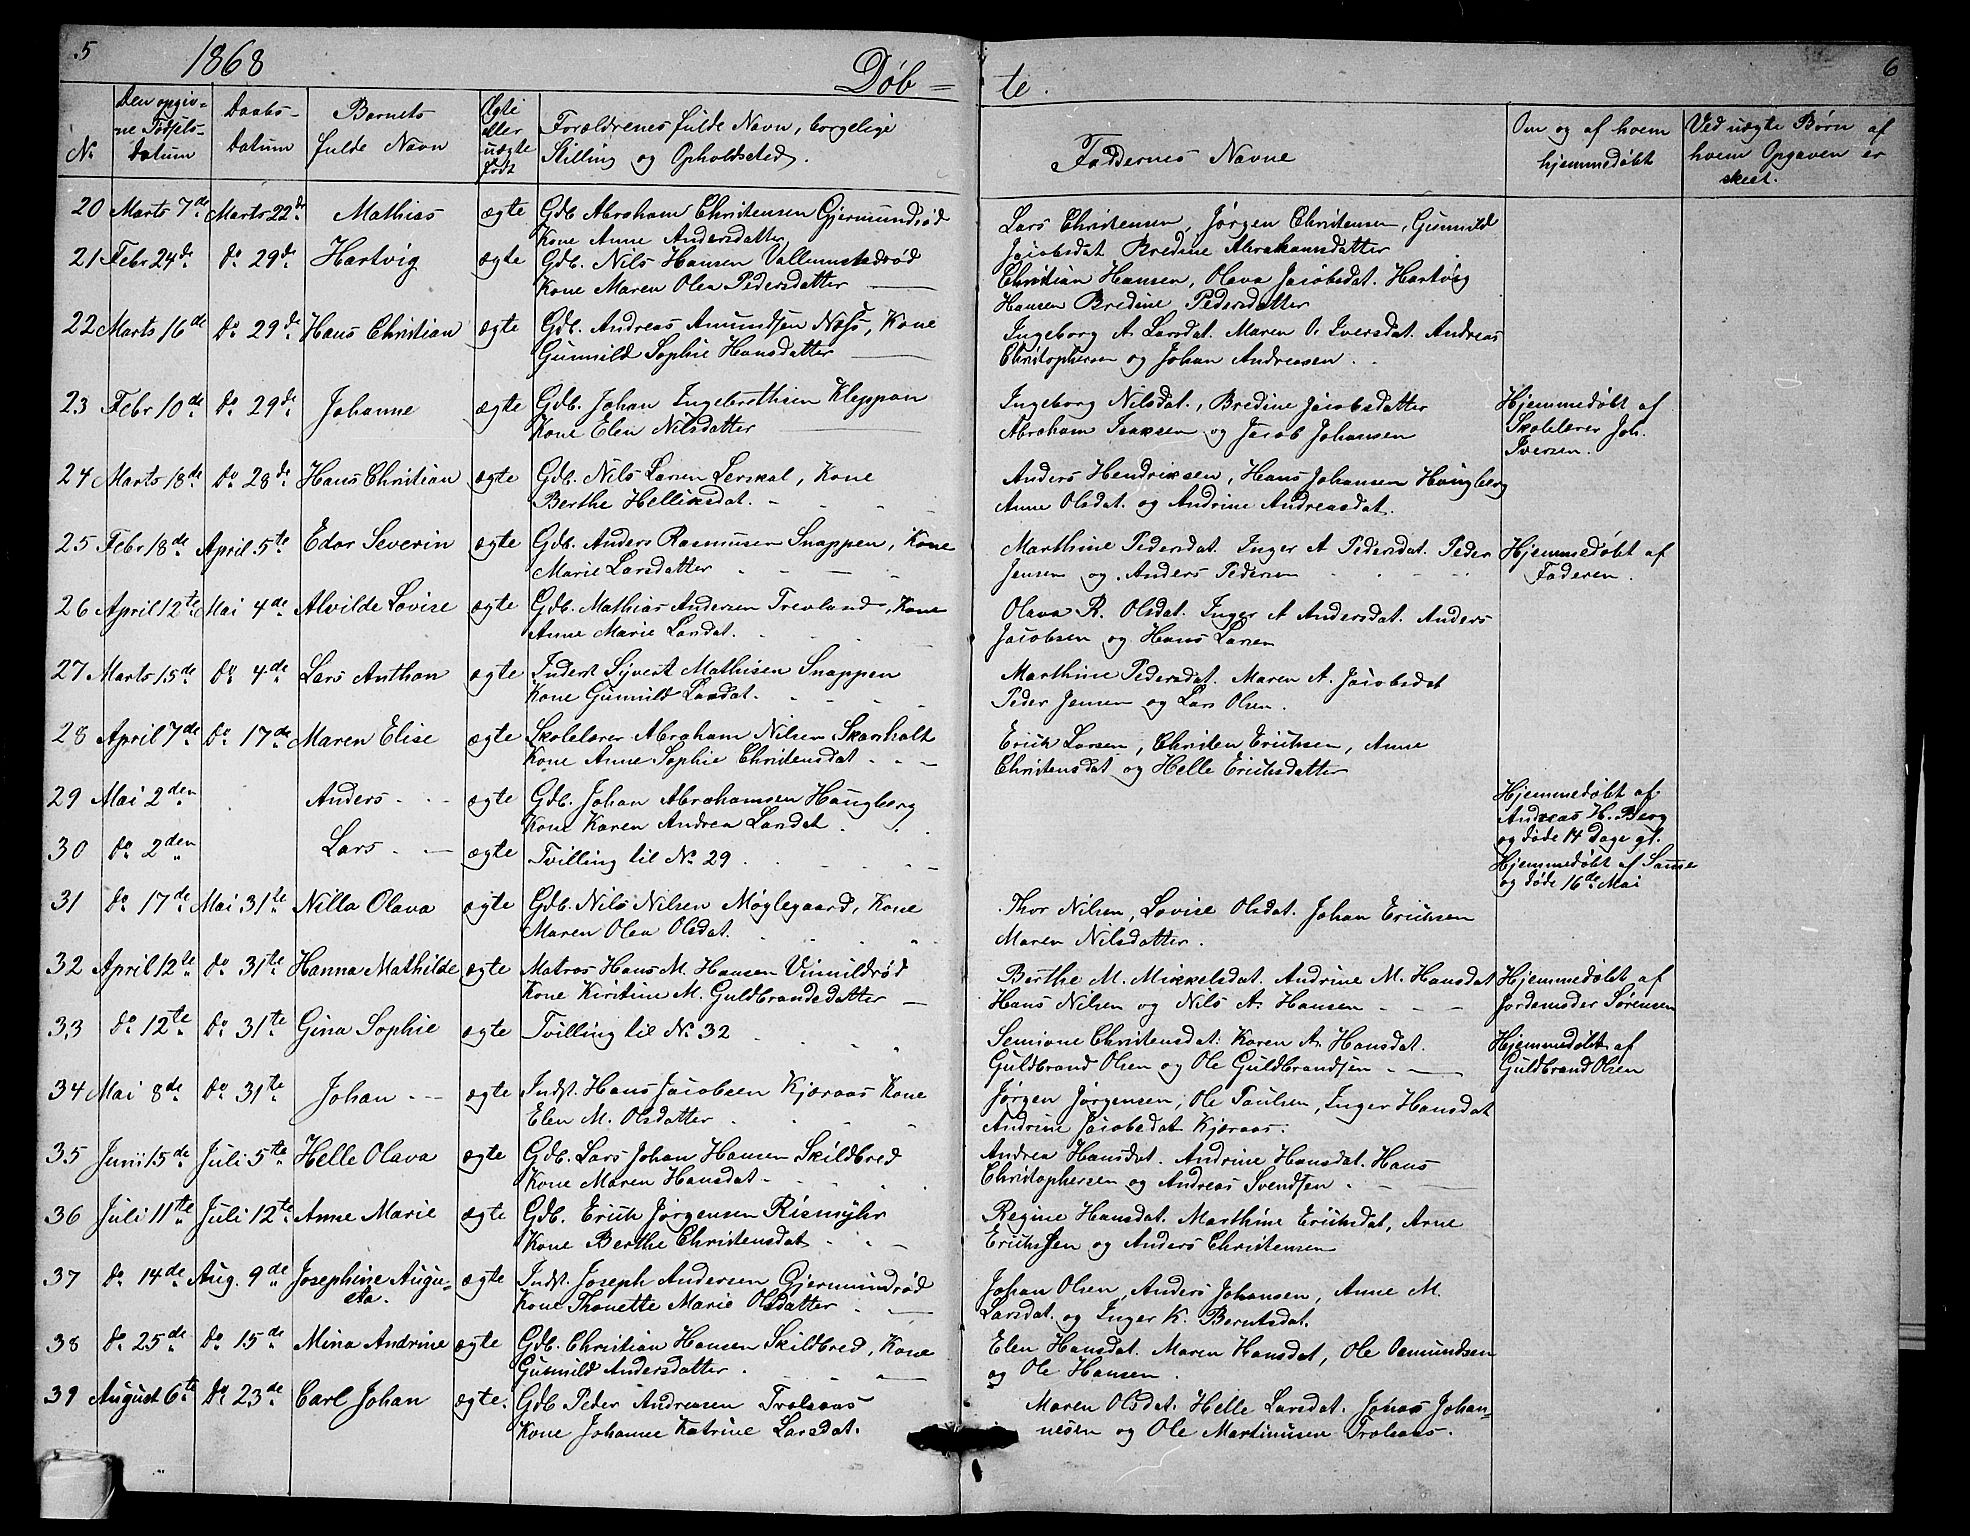 5 1868 Døb= te. 6
No
Den opgiv=
ne Fødsels=
datum
Daabs=
datum
Barnets
fulde Navn
Ægte
eller
uægte
født
Forældrenes fulde Navn, borgelige
Stilling og Opholdsted.
Faddernes Navne
Om og af hvem
hjemmedøbt
Ved uægte Børn af
hvem Opgaven er
skeet.
20 Marts 7de Marts 22de Mathias ægte Gdb. Abraham Christensen Gjermundrød
Kone Anne Andersdatter
Lars Christensen, Jørgen Christensen, Gunnild
Jacobsdat Bredine Abrahamsdatter
21 Febr 24de Do 29de Hartvig ægte Gdb. Nils Hansen Vallemstadrød
Kone Maren Olea Pedersdatter
Christian Hansen, Olava Jacobsdat. Hartvig
Hansen Bredine Pedersdatter
22 Marts 16de Do 29de Hans Christian ægte Gdb. Andreas Amundsen Næss, Kone
Gunnild Sophie Hansdatter
Ingeborg A. Larsdat. Maren O. Iversdat. Andreas
Christophersen og Johan Andreasen.
23 Febr 10de Do 29de Johanne ægte Gdb. Johan Ingebrethsen Kleppan
Kone Elen Nilsdatter
Ingeborg Nilsdat., Bredine Jacobsdatter
Abraham Isaksen og Jacob Johansen
Hjemmedøbt af
Skolelærer Joh.
Iversen.
24 Marts 18de Do 28de Hans Christian ægte Gdb. Nils Larsen Lerskal, Kone
Berthe Helliksdat.
Anders Hendriksen, Hans Johansen Haugberg
Anne Olsdat. og Andrine Andreasdat.
25 Febr 18de April 5te Edor Severin ægte Gdb. Anders Rasmusen Snappen, Kone
Marie Larsdatter
Marthine Pedersdat. Inger A Pedersdat. Peder
Jensen og Anders Pedersen
Hjemmedøbt af
Faderen.
26 April 12te Mai 4de Alvilde Lovise ægte Gdb. Mathias Andersen Trevland, Kone
Anne Marie Larsdat.
Olava R. Olsdat. Inger A Andersdat. Anders
Jacobsen og Hans Larsen
27 Marts 15de Do 4de Lars Anthon ægte Inderst Sivert Mathisen Snappen
Kone Gunnild Larsdat.
Marthine Pedersdat. Maren A. Jacobsdat
Peder Jensen og Lars Olsen.
28 April 7de Do 17de Maren Elise ægte Skolelærer Abraham Nilsen Skarsholt
Kone Anne Sophie Christensdat
Erich Larsen, Christen Erichsen, Anne
Christensdat og Helle Erichsdatter
29 Mai 2den Anders ægte Gdb. Johan Abrahamsen Haugberg
Kone Karen Andrea Larsdat.
Hjemmedøbt af
Andreas H. Berg
og døde 14 Dage gl.
30 Do 2den Lars ægte Tvilling til No 29
Hjemmedøbt af Samme
og døde 16de Mai
31 Do 17de Mai 31te Nilla Olava ægte Gdb. Nils Nilsen Møglegaard, Kone
Maren Olea Olsdat.
Thor Nilsen, Lovise Olsdat. Johan Erichsen
Maren Nilsdatter.
32 April 12te Do 31te Hanna Mathilde ægte Matros Hans M. Hansen Vimildrød
Kone Kirstine M. Guldbrandsdatter
Berthe M. Mikkelsdat. Andrine M. Hansdat
Hans Nilsen og Nils A. Hansen
Hjemmedøbt af
Jordemoder Sørensen
33 Do 12te Do 31te Gina Sophie ægte Tvilling til No 32
Semione Christensdat. Karen A. Hansdat.
Guldbrand Olsen og Ole Guldbrandsen
Hjemmedøbt af
Guldbrand Olsen
34 Mai 8de Do 31te Johan ægte Indst. Hans Jacobsen Kjøraas Kone
Elen M. Olsdatter
Jørgen Jørgensen, Ole Paulsen, Inger Hansdat
Andrine Jacobsdat Kjøraas.
35 Juni 15de Juli 5te Helle Olava ægte Gdb. Lars Johan Hansen Skildbred
Kone Maren Hansdat
Andrea Hansdat. Andrine Hansdat. Hans
Christophersen og Andreas Svendsen
36 Juli 11te Juli 12te Anne Marie ægte Gdb. Erich Jørgensen Rismyhr
Kone Berthe Christensdat
Regine Hansdat. Marthine Erichsdat, Arne
Erichsen og Anders Christensen
37 Do 14de Aug. 9de Josephine Augu=
sta. ægte Indst. Joseph Andersen Gjermundrød
Kone Thonette Marie Olsdatter
Johan Olsen, Anders Johansen, Anne M.
Larsdat. og Inger K. Berntsdat.
38 Do 25de Do 15de Mina Andrine ægte Gdb. Christian Hansen Skildbred, Kone
Gunnild Andersdatter
Elen Hansdat. Maren Hansdat, Ole Osmundsen
og Ole Hansen.
39 August 6te Do 23de Carl Johan ægte. Gdb Peder Andreasen Trolsaas
Kone Johanne Katrine Larsdat.
Maren Olsdat. Helle Larsdat. Jonas Johan=
nesen og Ole Martinusen Trolsaas.